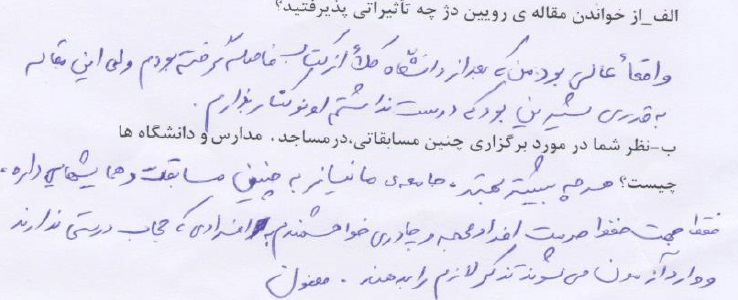 الف_از خواندن مقاله ی رویین دژ چه تاثیراتی پذیرفتید؟
واقعاً عالی بود. من که بعد از دانشگاه کلاً از کتاب فاصله گرفته بودم ولی این مقاله
به قدری شیرین بود که دوست نداشتم اونو کنار بذارم.
ب-نظر شما در مورد برگزاری چنین مسابقاتی،در مساجد، مدارس و دانشگاه ها
چیست؟ هر چه بیشتر بهتر، جامعه ی ما نیاز به چنین مسابقات و همایشهایی داره،
فقط جهت حفظ حرمت افراد محجبه و چادری خواهشمندم به افرادی که حجاب درستی ندارند
و وارد آزمون می شوند تذکر لازم را بدهند. ممنون